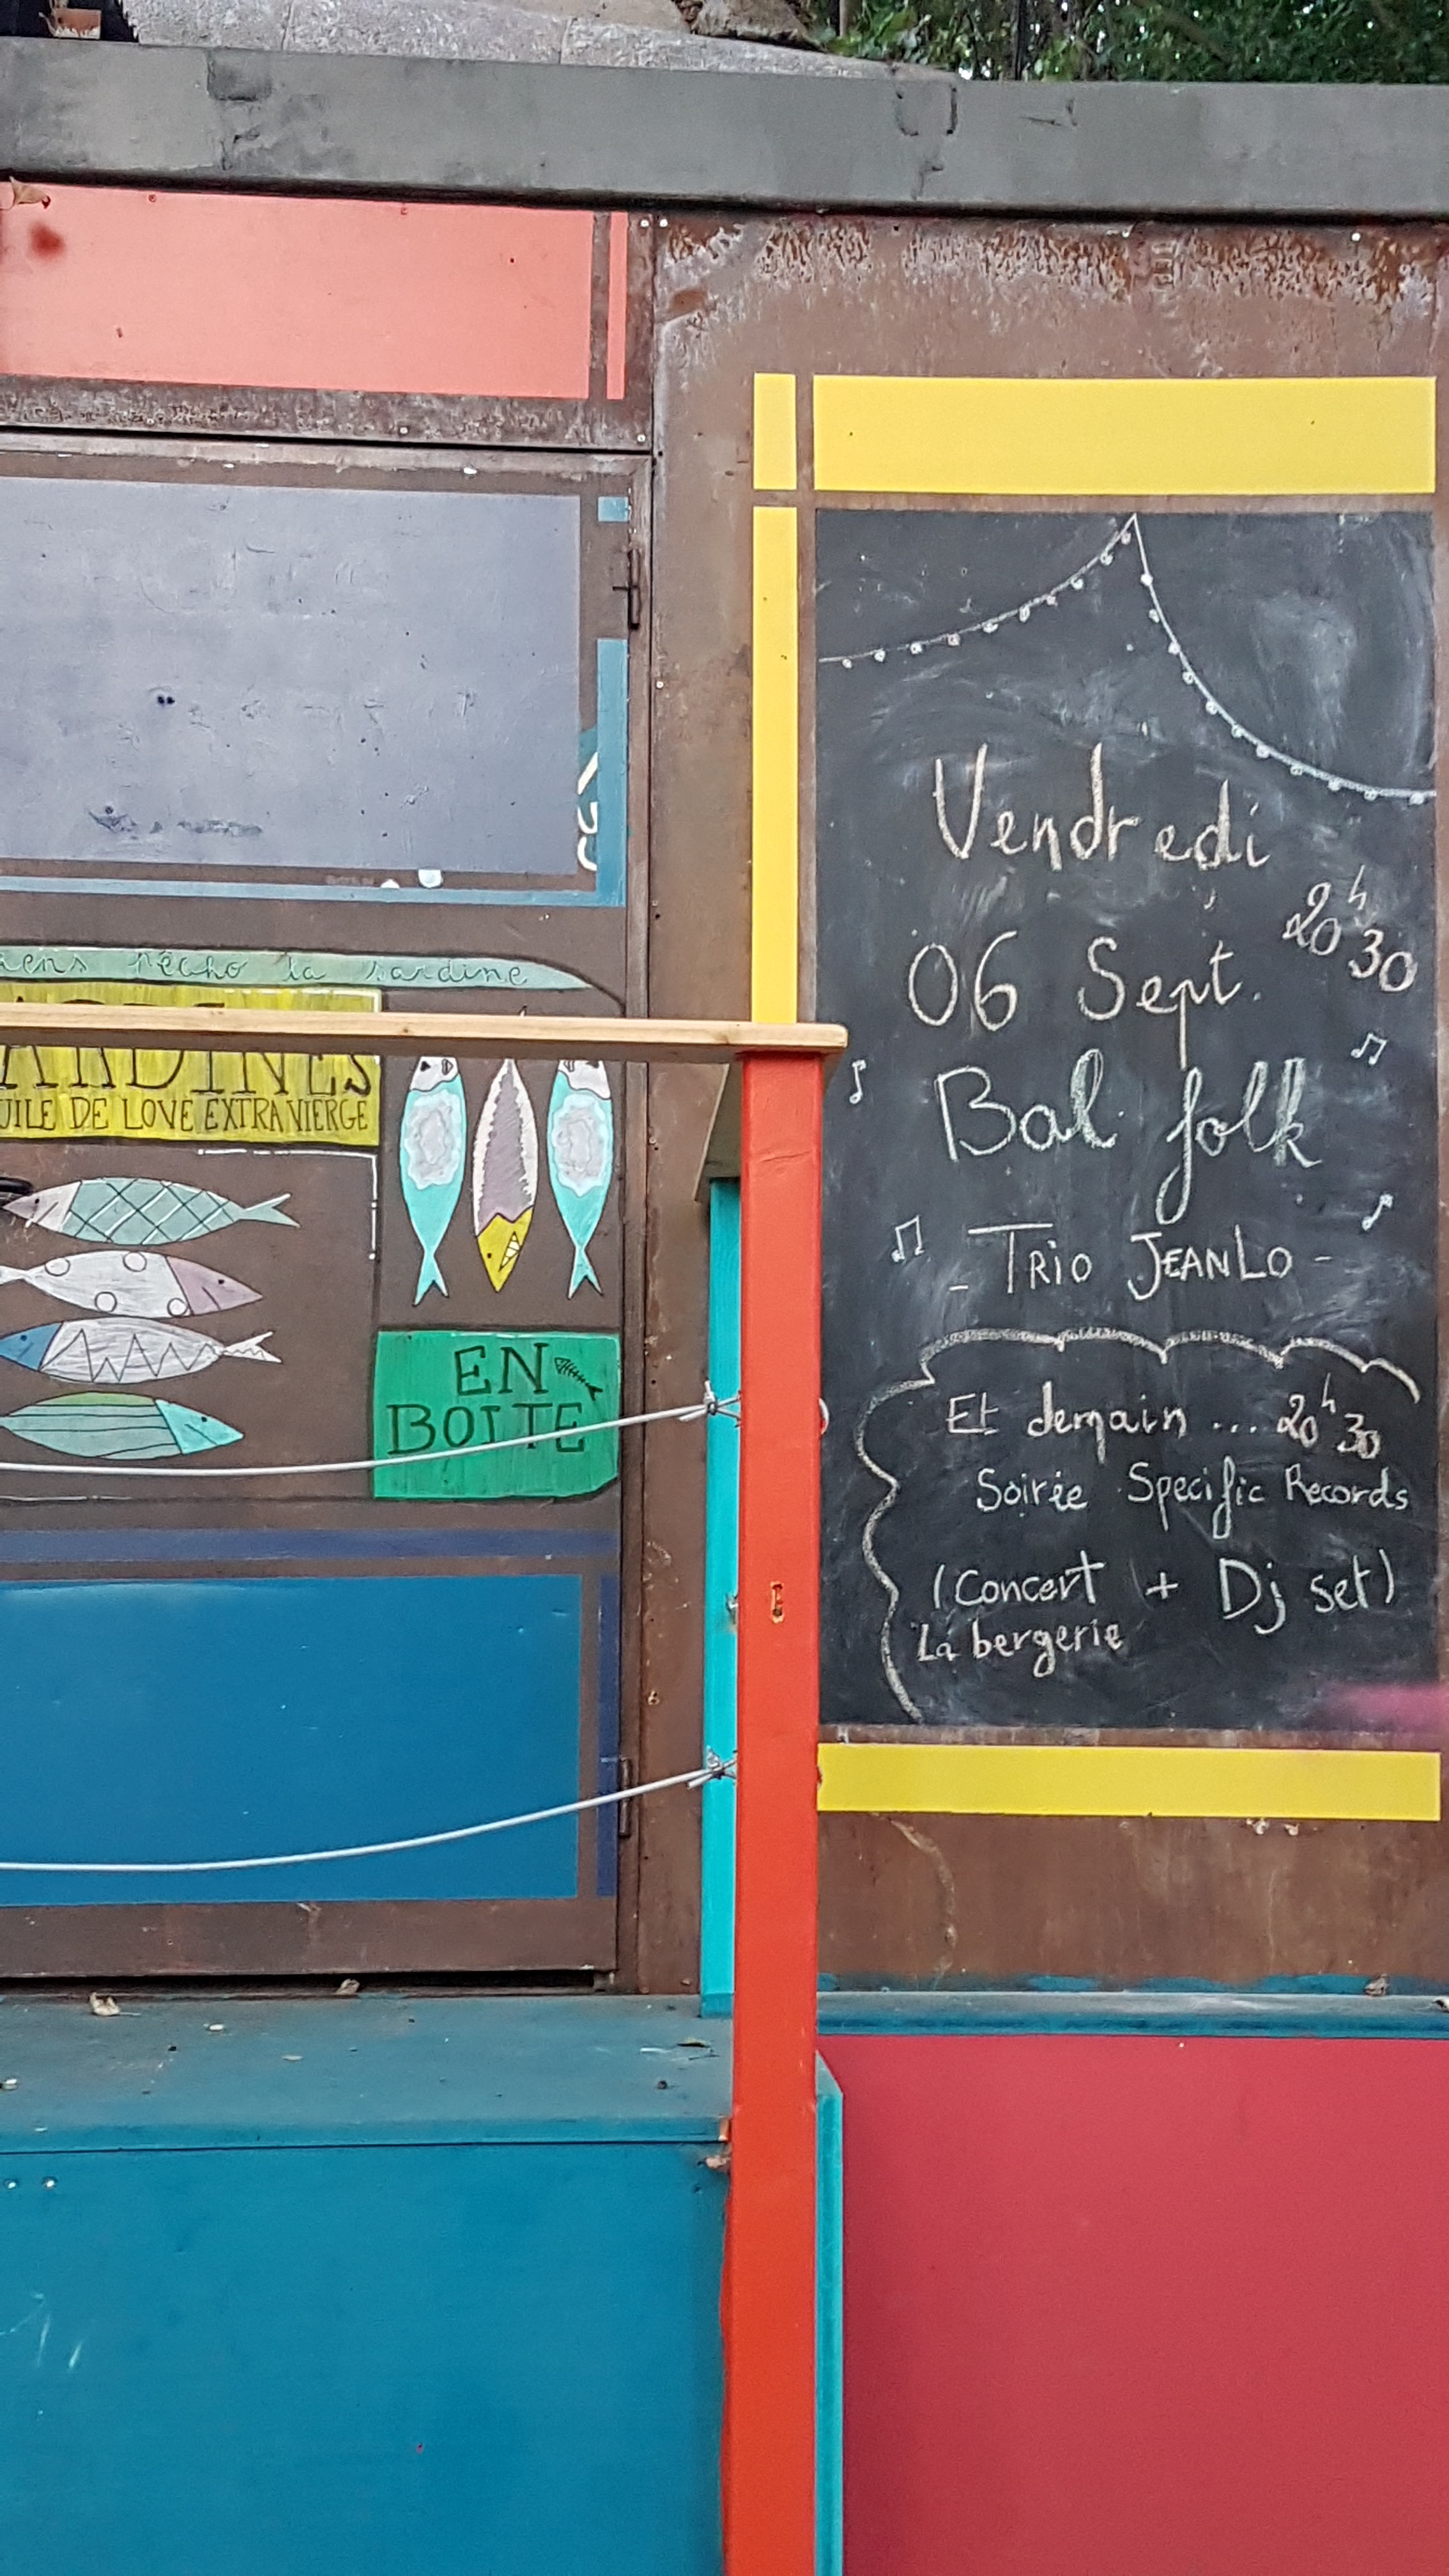 pécho la sardine
UILE DE LOVE EXTRA VIERGE
EN
BOITE
Vendredi
20h30
06 Sept.
Bal folk
- TRIO JEANLO -
Et demain ... 20h30
Soirée Specific Records
(Concert + Dj set)
La bergerie